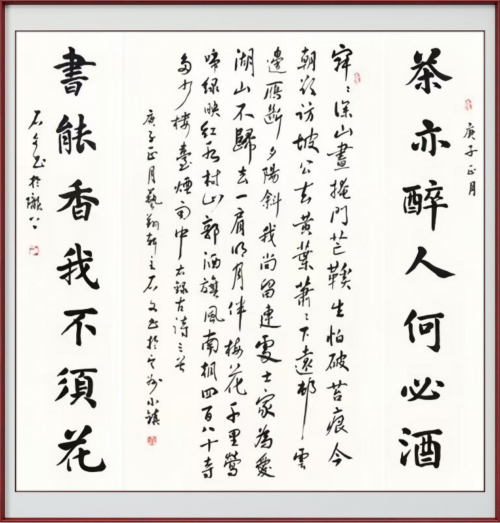 茶亦醉人何必酒
庚子正月
寂〻深山晝掩門芒鞵生怕破苔痕今
朝欲訪坡公去黃葉蕭〻下遠邨雲
邊雁斷夕陽斜我尚留連處士家為愛
湖山不歸去一肩明月伴梅花千里鶯
啼綠映紅水村山郭酒旗風南朝四百八十寺
多少樓臺煙雨中 古詩三首
庚子正月藝翔軒主石文書於小鎮
書能香我不須花
石文書於